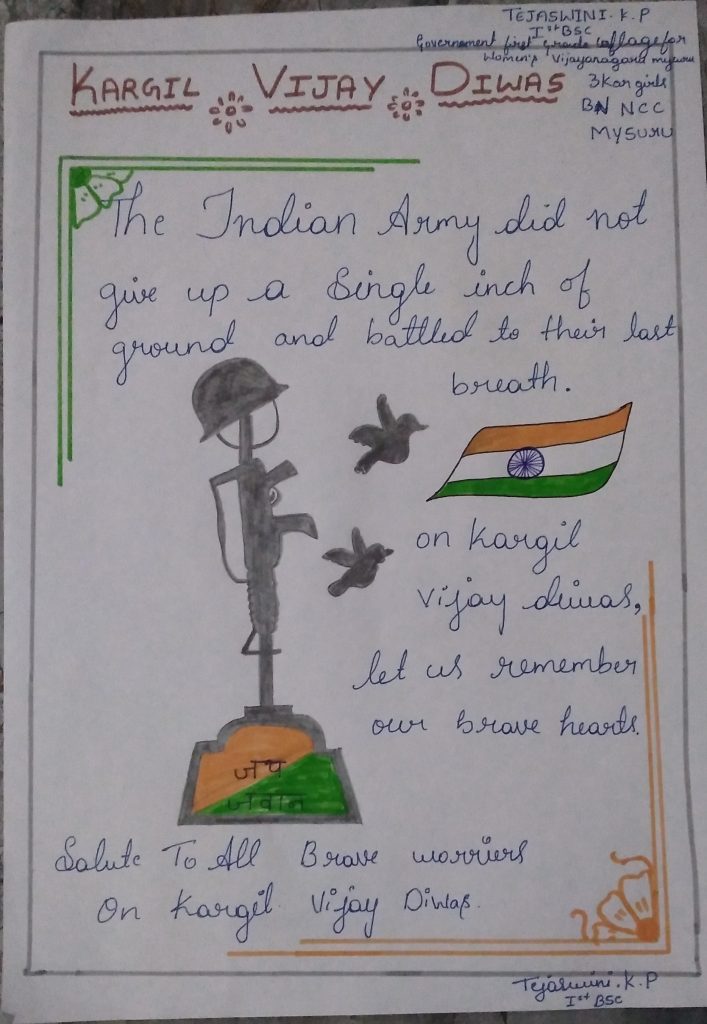 TEJASWINI. K. P
Ist BSC
Governament first grade collage for
Women's Vijayanagara mysuru
3 Kar girls
BN NCC
MYSURU
KARGIL VIJAY DIWAS
The Indian Army did not
give up a Single inch of
ground and battled to their last
breath.
on Kargil
Vijay diwas,
let us remember
our brave hearts.
जय
जवान
Salute To All Brave worriers
On Kargil Vijay Diwas.
Tejaswini. K. P
Ist BSC